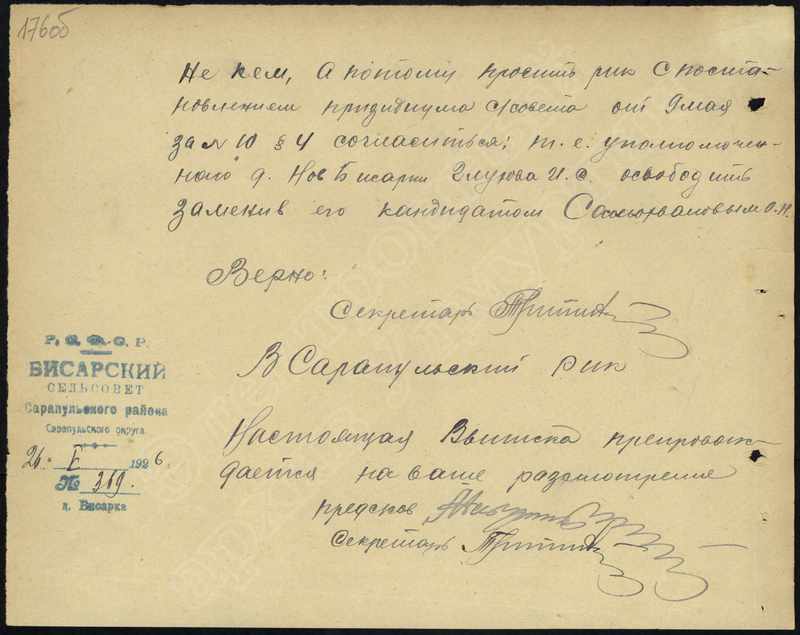 176об
Не кем, А потому просить рик с поста-
новлением придидиума с/совета от 9 мая
за № 10 § 4 согласиться; т. е. уполномочен-
ного д. Нов Бисарки Глухова И. С. освободить
заменив его кандидатом О. И.
Верно:
Секретарь
В Сарапульский рик
Настоящая Выписка препровож-
дается на ваше разсмотрение
предсков
Секретарь
Р. С. Ф. С. Р.
БИСАРСКИЙ
СЕЛЬСОВЕТ
Сарапульского района
Сарапульского округа.
26. V 1926.
№ 369.
д. Бисарка